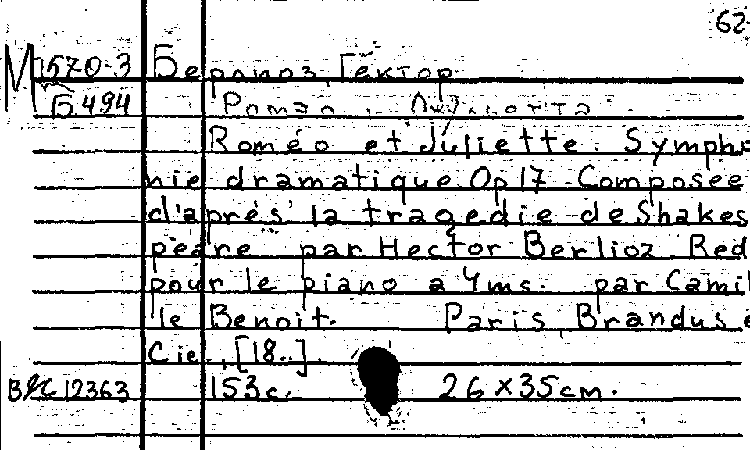 62
М 570-3 Берлиоз, Гектор.
Б 494 Ромео и Джульетта.
Roméo et Juliette. Sympho
nie dramatique Op 17 Composée
d'après la tragedie de Shakes
peare par Hector Berlioz. Red
pour le piano a 4 ms. par Camil
le Benoit. Paris, Brandus e
Cie., [18..].
12363 153 с. 26 x 35 cm.